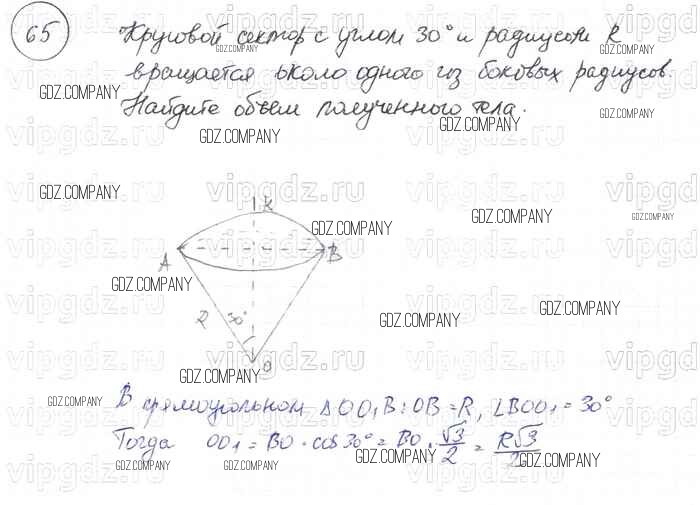 65
Круговой сектор с углом 30° и радиусом R
вращается около одного из боковых радиусов.
Найдите объем полученного тела.
K
A
B
R
30°
O
В прямоугольном ΔOO₁B: OB = R, ∠BOO₁ = 30°
Тогда OO₁ = BO · cos 30° = BO · √3/2 = R√3/2
GDZ.COMPANY
vipgdz.ru